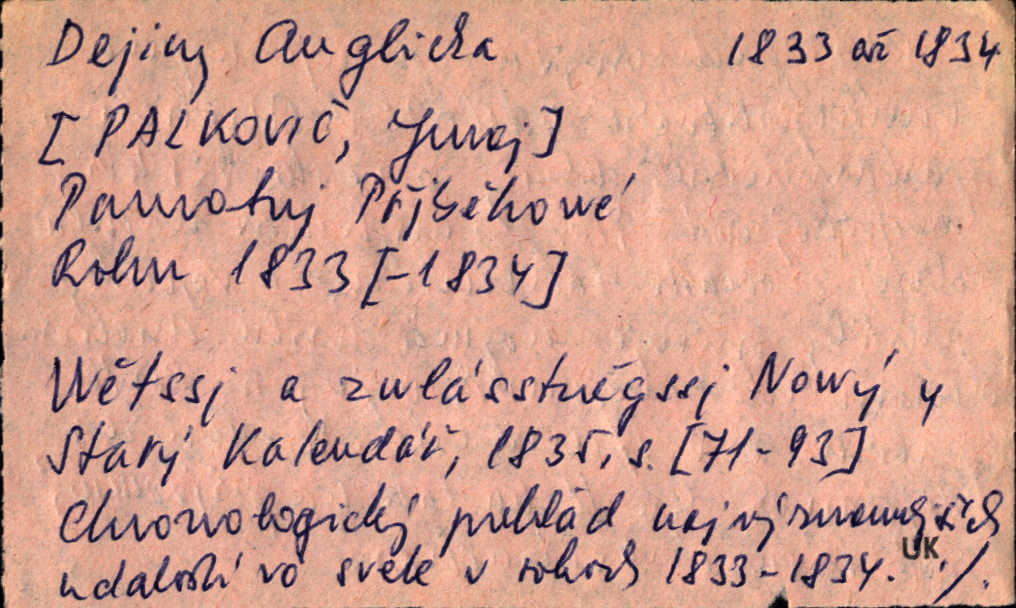 Dejiny Anglicka 1833 až 1834
[PALKOVIČ, Juraj]
Pamatnj Přjběhowé
Roku 1833 [-1834]
Wětssj a zwlásstněgssj Nowý y
Starý Kalendář, 1835, s. [71-93]
Chronologický prehlád najvýznamnejších
udalostí vo svete v rokoch 1833-1834. ./.
UK